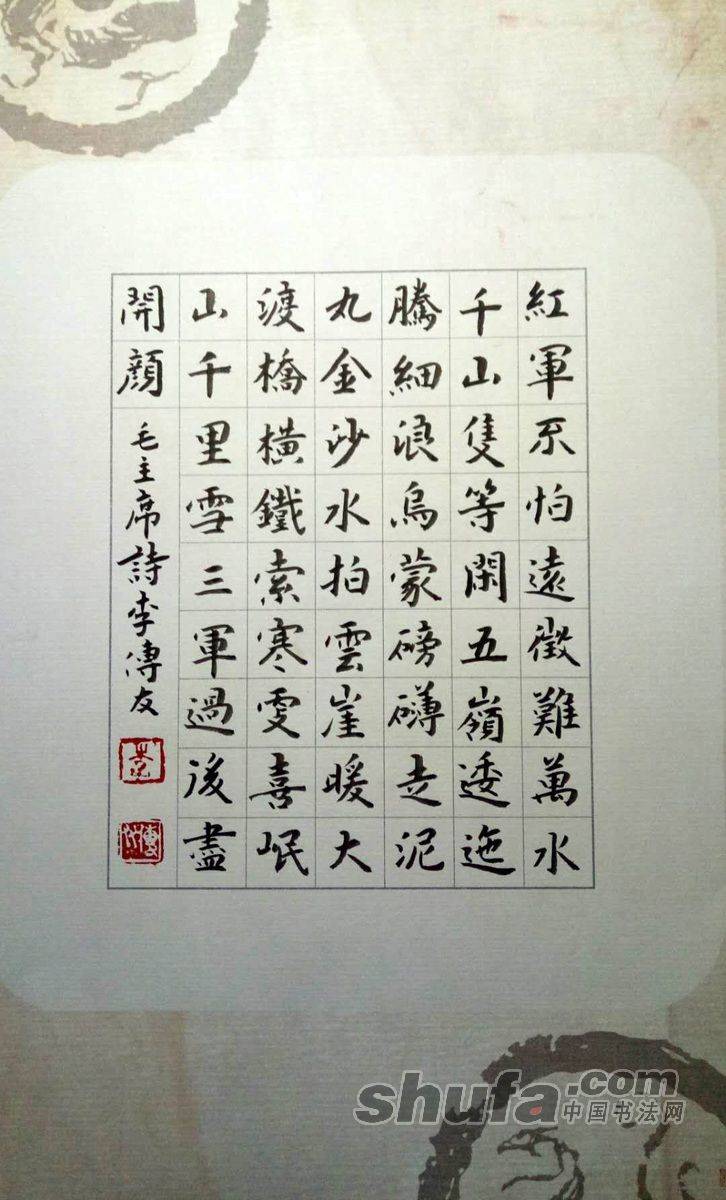 紅軍不怕遠徵難萬水
千山隻等閑五嶺逶迤
騰細浪烏蒙磅礴走泥
丸金沙水拍雲崖暖大
渡橋橫鐵索寒雯喜岷
山千里雪三軍過後盡
開顏毛主席詩李傳友
shufa.com
中国书法网